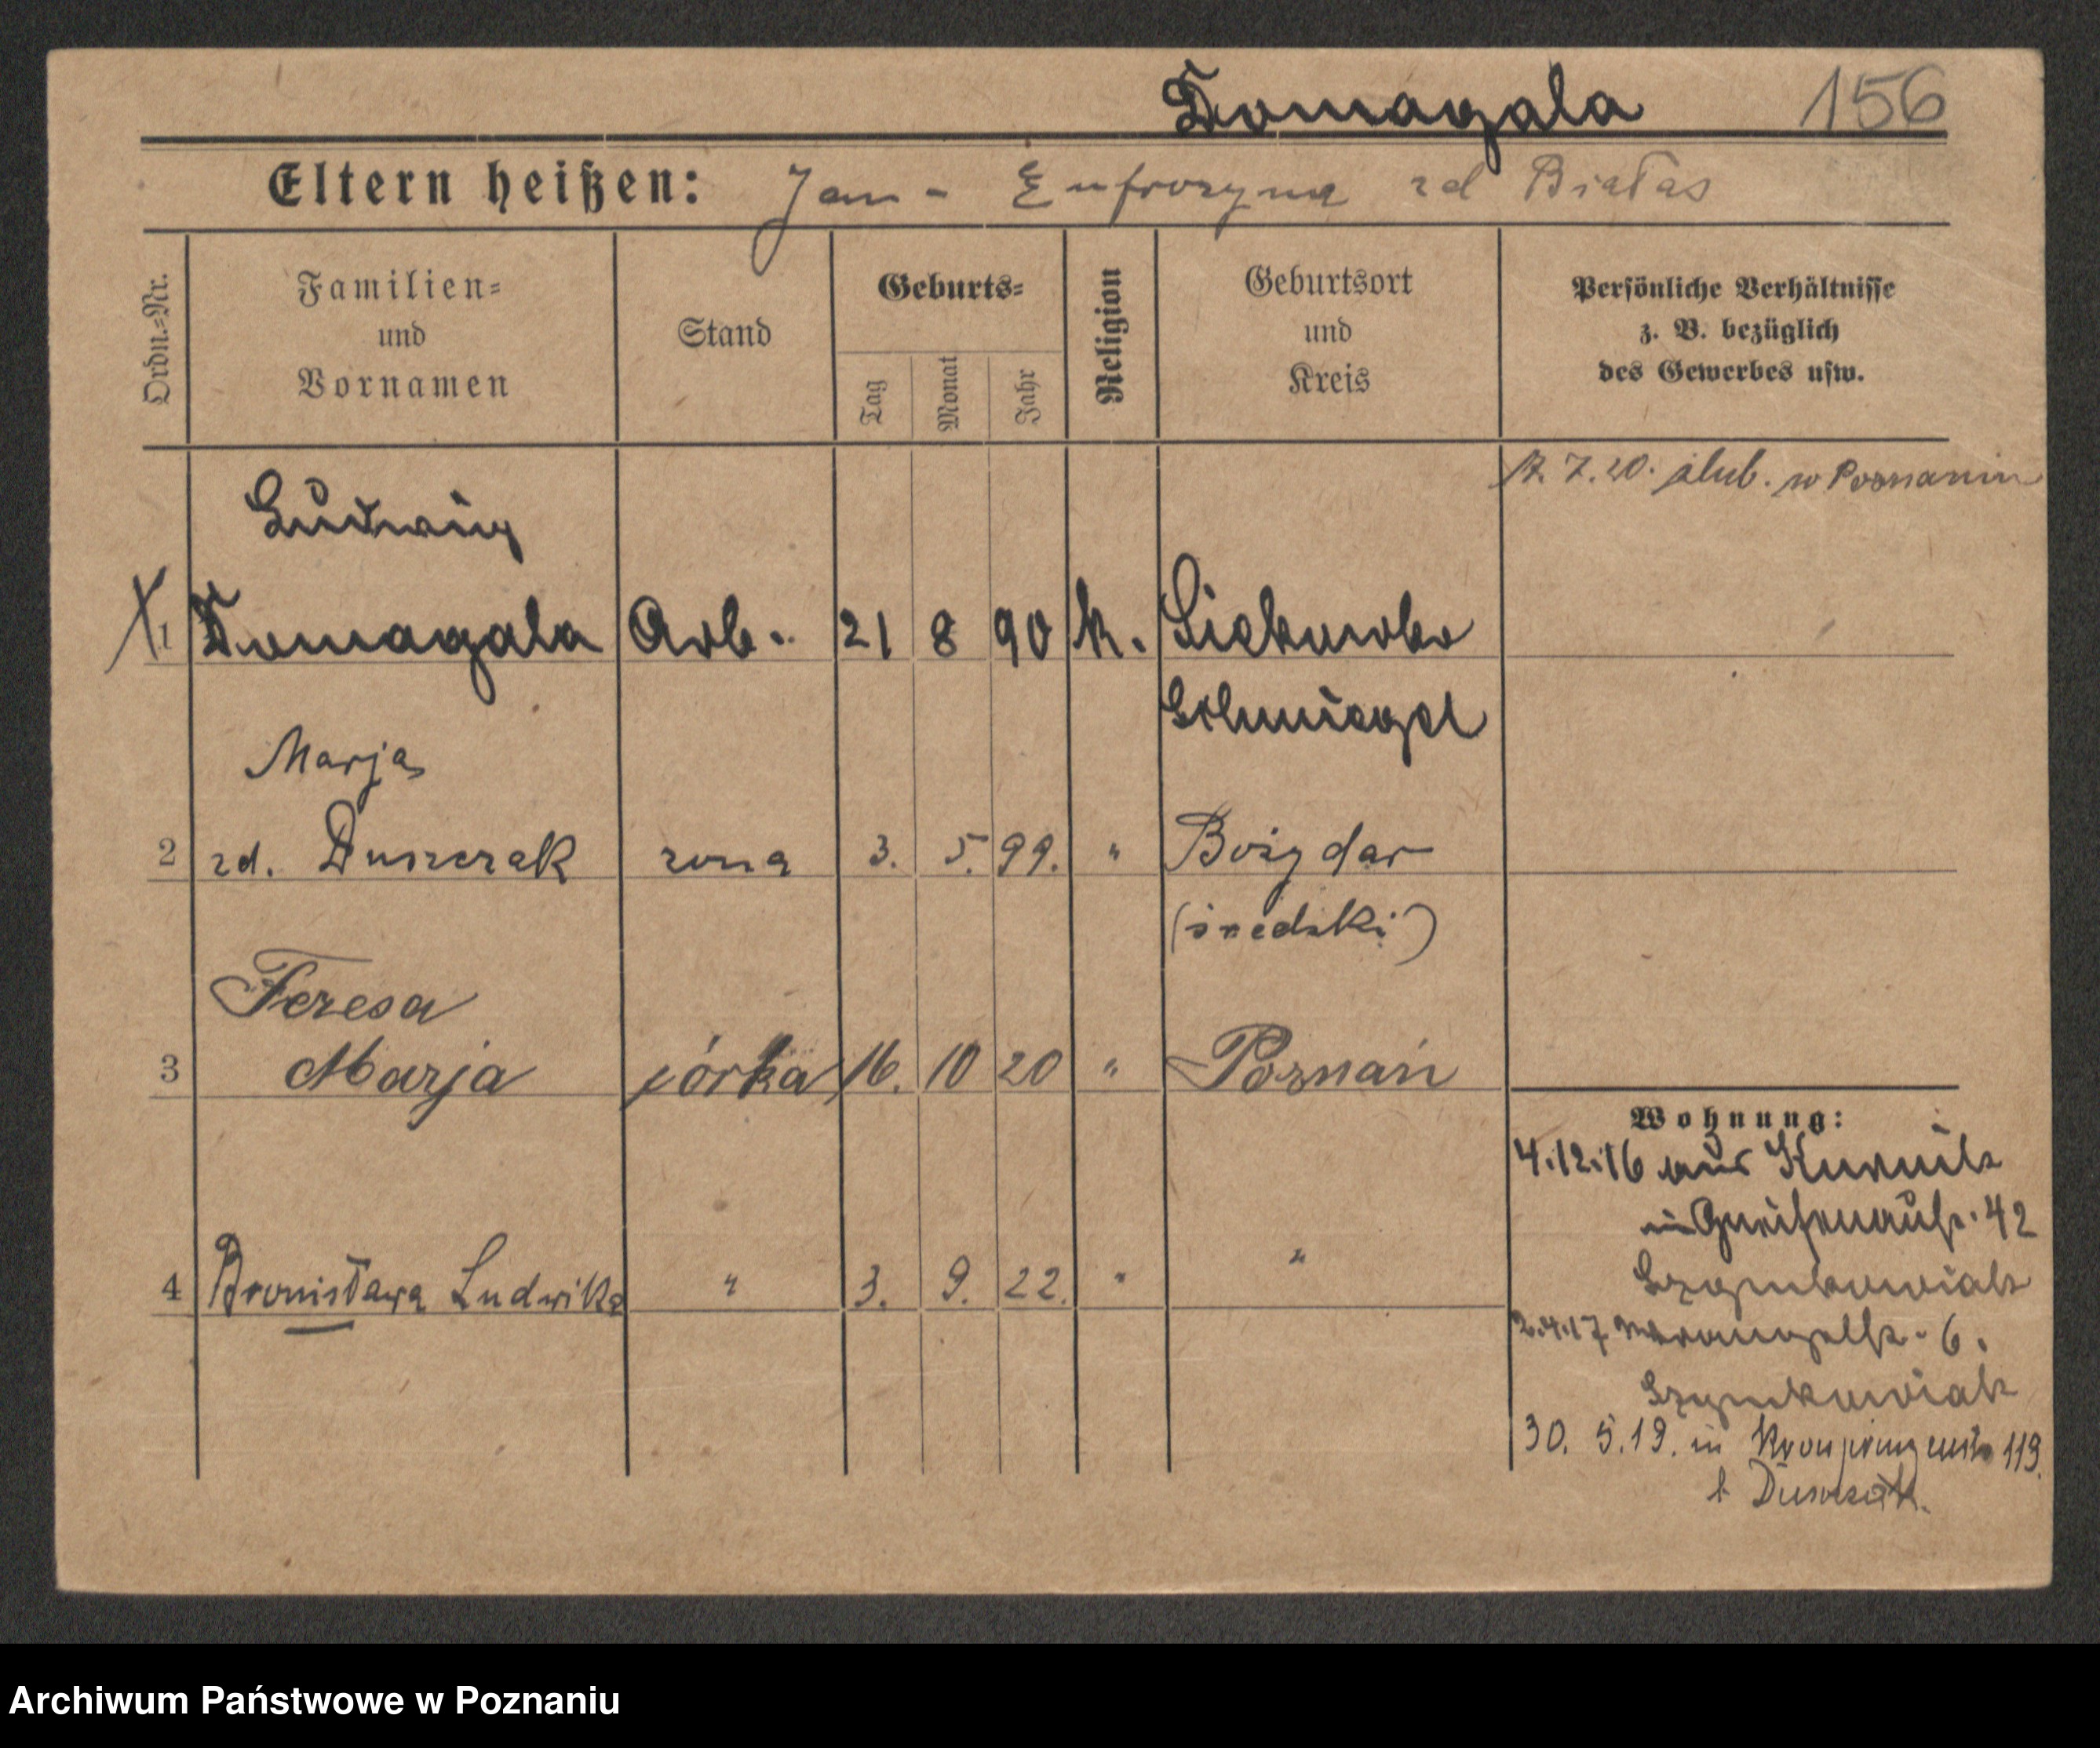 Domagala 156
Eltern heißen: Jan - Eufrozyna zd Białas
Ordn.=Nr.
Familien=
und
Vornamen
Stand
Geburts=
Tag
Monat
Jahr
Religion
Geburtsort
und
Kreis
Persönliche Verhältnisse
z. B. bezüglich
des Gewerbes usw.
17. 7. 20. ślub. w Poznaniu
Ludwig
1 Domagala Arb. 21 8 90 k.
Schmiegel
Marja
2 zd. Duszczak żona 3. 5. 99. " Bożydar
(średzki)
Teresa
3 Marja córka 16. 10 20 " Poznań
4 Bronisława Ludwika " 3. 9. 22. " "
Wohnung:
4.12.16 aus Kurnik
in Gneisenaustr. 42
Szymkowiak
2.4.17 Wrangelstr. 6.
Szymkowiak
30. 5. 19. in Kronprinzenstr. 119.
b Duszczak.
Archiwum Państwowe w Poznaniu